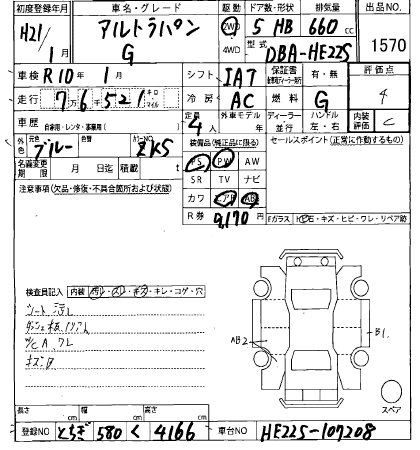 初度登録年月 車名・グレード 駆動 ドア数・形状 排気量 出品NO
H21/1月 アルトラパン G 2WD 4WD 5 HB 660 cc 1570
型式 DBA-HE22S
車検 R10年 1月 シフト IA7 保証書 有・無 評価点 4
走行 7 6 5 2 1 キロ マイル 冷房 AC 燃料 G
車歴 自家用・レンタ・事業用( ) 定員 4人 外車モデル 年 ディーラー 並行 ハンドル 左・右 内装評価 C
外色 元色 ブルー 色替 カラーNO ZKS 装備品(純正品に限る) セールスポイント(正常に作動するもの)
名義変更期限 月 日迄 積載 t PS PW AW
注意事項(欠品・修復・不具合箇所および状態) SR TV ナビ
カワ エアB AB
R券 9,170円 Fガラス ヒビ・キズ・ヒビ・ワレ・リペア跡
検査員記入 内装 汚レ・スレ・キズ・キレ・コゲ・穴
シート汚レ
キズ凹
AB2
B1.
スペア
長さ cm 幅 cm 高さ cm
登録NO とちぎ 580 く 4166 車台NO HE22S-107208